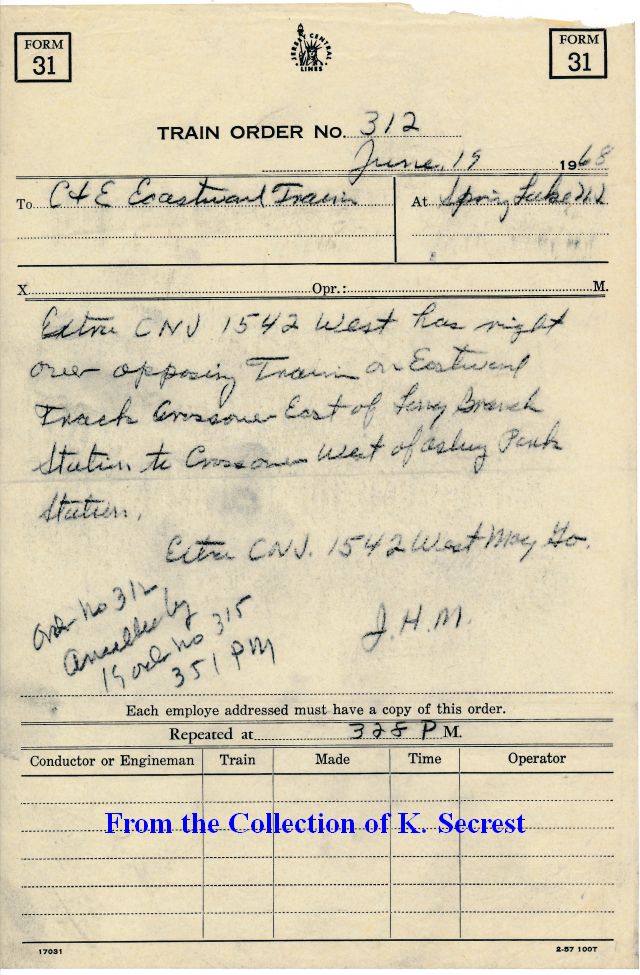 FORM
31
JERSEY CENTRAL
LINES
FORM
31
TRAIN ORDER No. 312
June, 19 1968
To C & E Eastward Train At Spring Lake N.J.
X Opr.: M.
Extra CNJ 1542 West has right
over opposing Train on Eastward
Track Crossover East of Long Branch
Station to Crossover West of Asbury Park
Station.
Extra CNJ. 1542 West May Go.
J.H.M.
Order No 312
Annulled by
19 order no 315
351 PM
Each employe addressed must have a copy of this order.
Repeated at 328 P M.
Conductor or Engineman Train Made Time Operator
From the Collection of K. Secrest
17031 2-57 100T